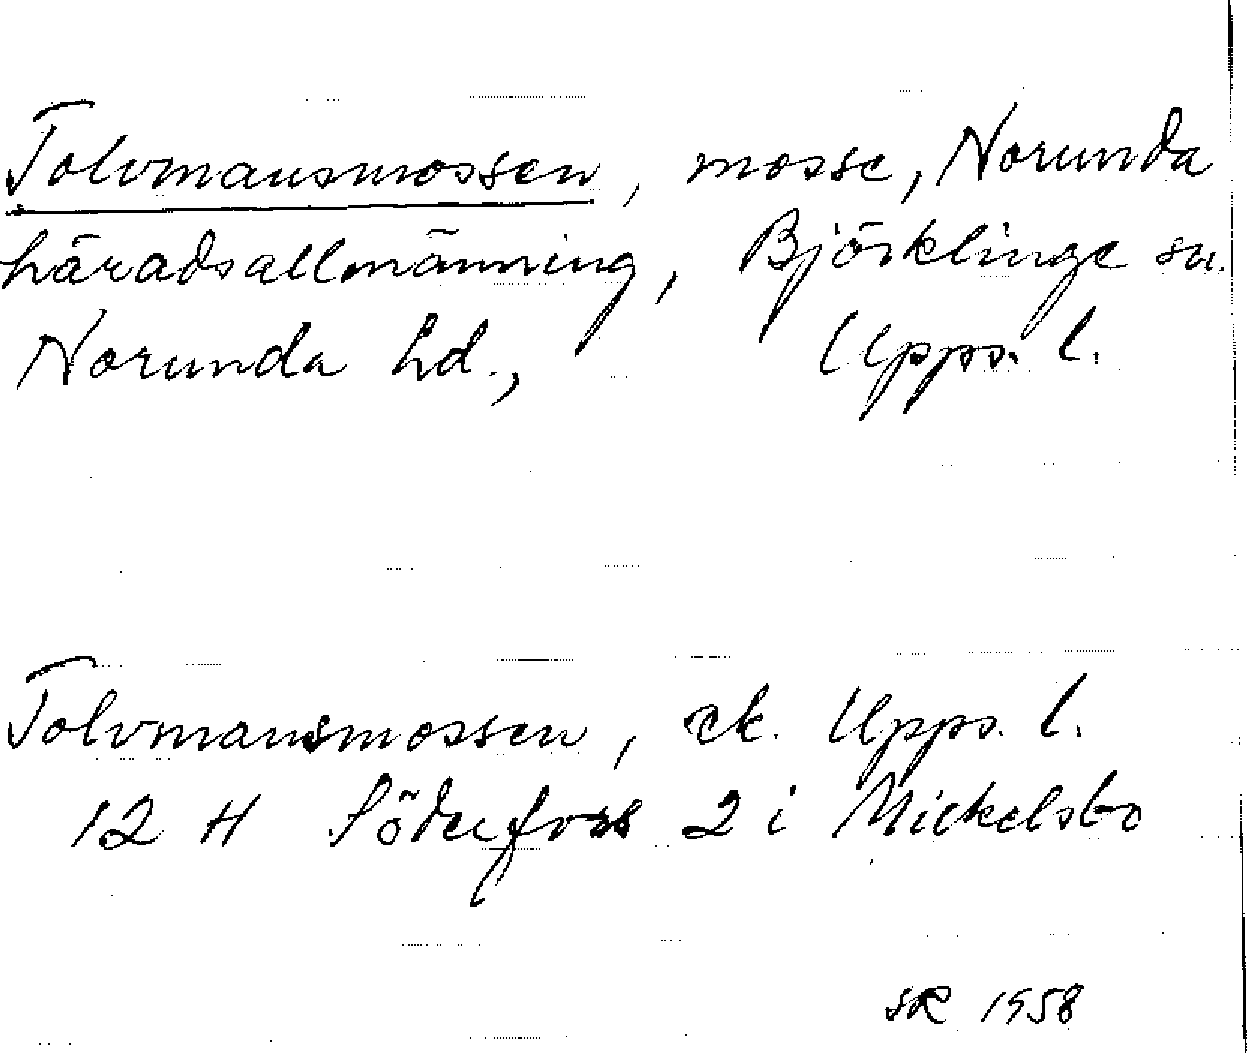 Tolvmansmossen, mosse, Norunda
häradsallmänning, Björklinge sn.
Norunda hd., Upps. l.
Tolvmansmossen, ek. Upps. l.
12 H Söderfors 2 i Mickelsbo
SR 1958